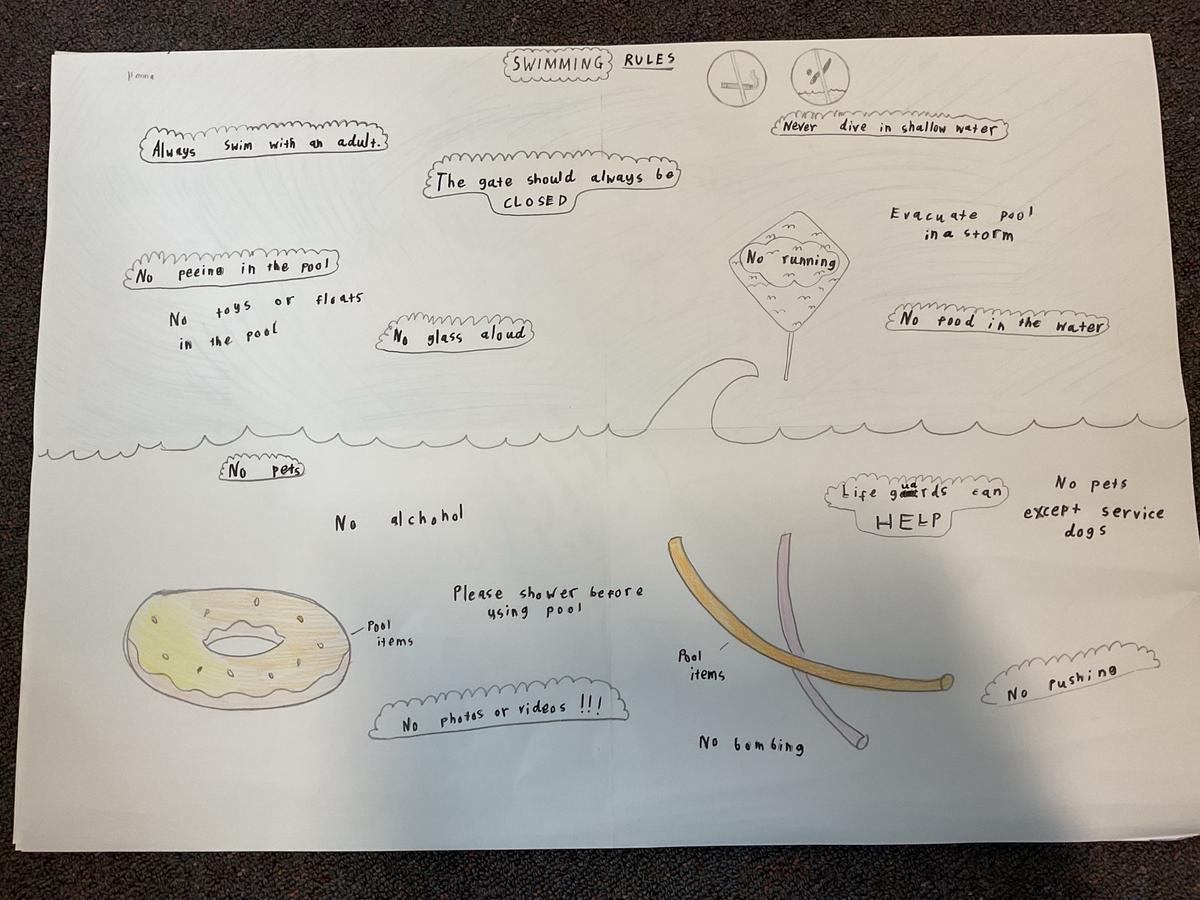 SWIMMING RULES
Always swim with an adult.
The gate should always be
CLOSED
Never dive in shallow water
No peeing in the pool
No toys or floats
in the pool
No glass aloud
No running
Evacuate pool
in a storm
No food in the water
No pets
No alchohol
Life guards can
HELP
No pets
except service
dogs
Please shower before
using pool
Pool
items
Pool
items
No photos or videos !!!
No pushing
No bombing